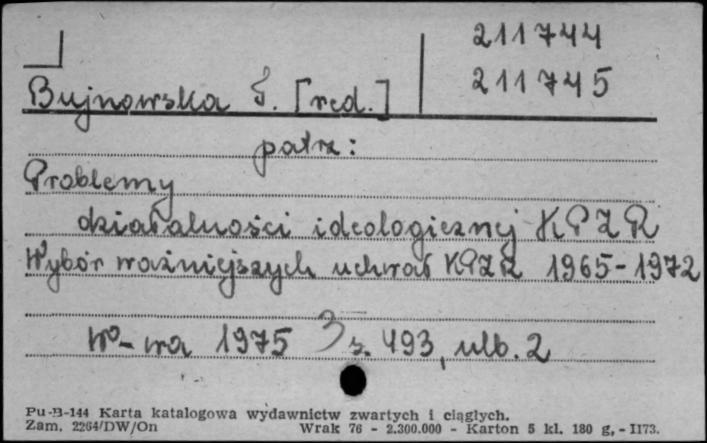 211744
211745
Bujnowska T. [red.]
patrz:
Problemy
działalności ideologicznej KPZR
Wybór ważniejszych uchwał KPZR 1965-1972
W-wa 1975 s. 493, nlb. 2
Pu-B-144 Karta katalogowa wydawnictw zwartych i ciągłych.
Zam. 2264/DW/On Wrak 76 - 2.300.000 - Karton 5 kl. 180 g. - II73.